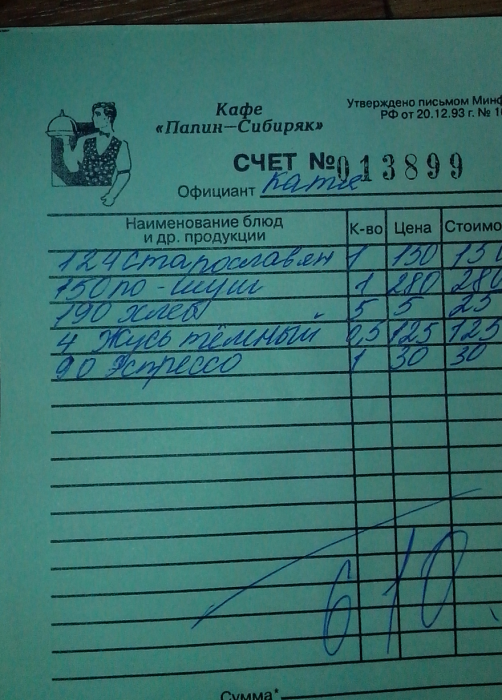 Кафе
«Папин–Сибиряк»
Утверждено письмом Минф
РФ от 20.12.93 г. № 16
СЧЕТ № 013899
Официант Катя
Наименование блюд и др. продукции К-во Цена Стоимо
124 Старославян 1 150 150
150 по-шуш 1 280 280
190 хлеб 5 5 25
4 Жусь тёмный 0,5 125 125
90 Эспрессо 1 30 30
610
Сумма*